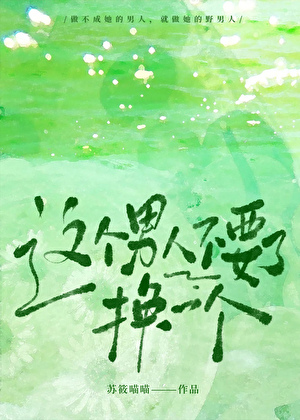 /做不成她的男人，就做她的野男人/
这个男人不要了
换一个
苏筱喵喵——作品